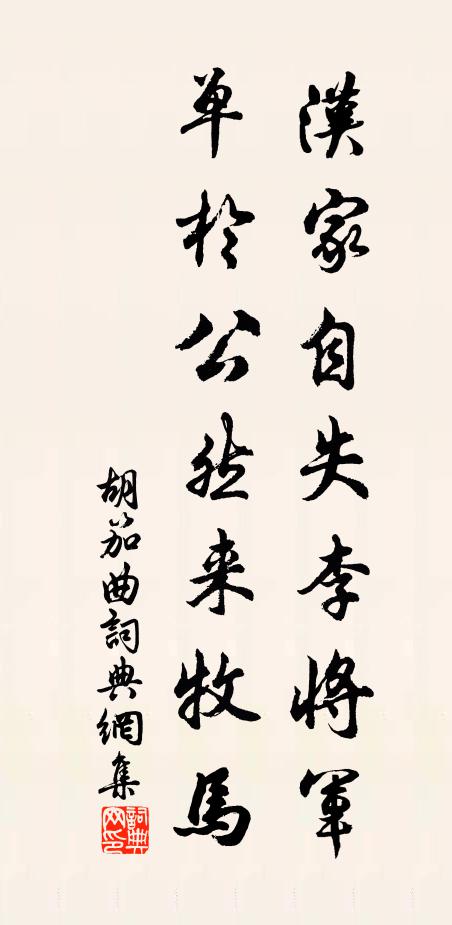 漢家自失李將軍
单於公然来牧馬
胡笳曲詞典網集
詞典网印